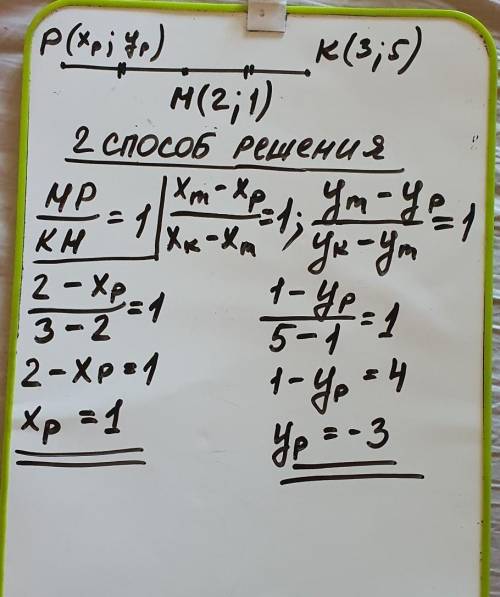 P(xp; yp) K(3;5)
M(2;1)
2 способ решения
MP/KM = 1 | xm - xp / xk - xm = 1; ym - yp / yk - ym = 1
2 - xp / 3 - 2 = 1
1 - yp / 5 - 1 = 1
2 - xp = 1
1 - yp = 4
xp = 1
yp = -3